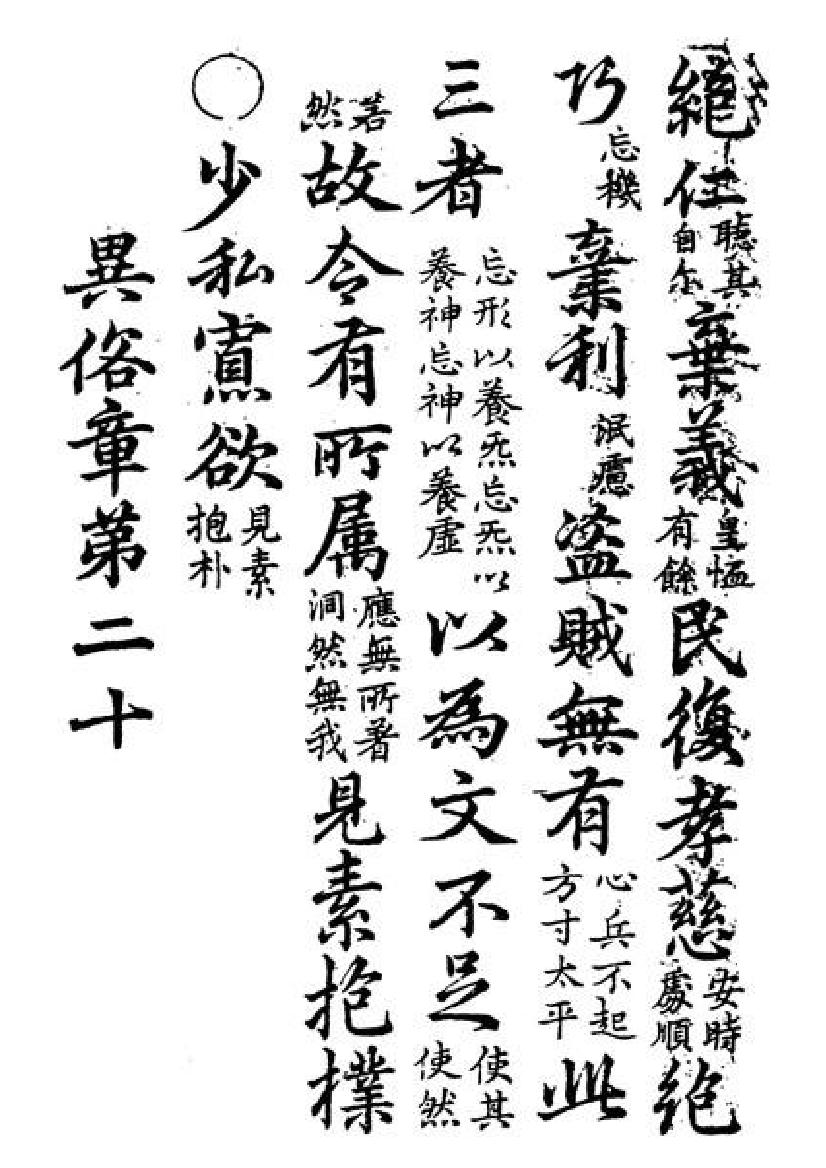 絕仁聽其自尒棄義皇恤有餘民復孝慈安時處順絕
巧忘機棄利泯慮盜賊無有心兵不起方寸太平此
三者忘形以養炁忘炁以養神忘神以養虛以為文不足使其使然
若然故令有所属應無所著洞然無我見素抱樸
○少私寡欲見素抱朴
異俗章第二十